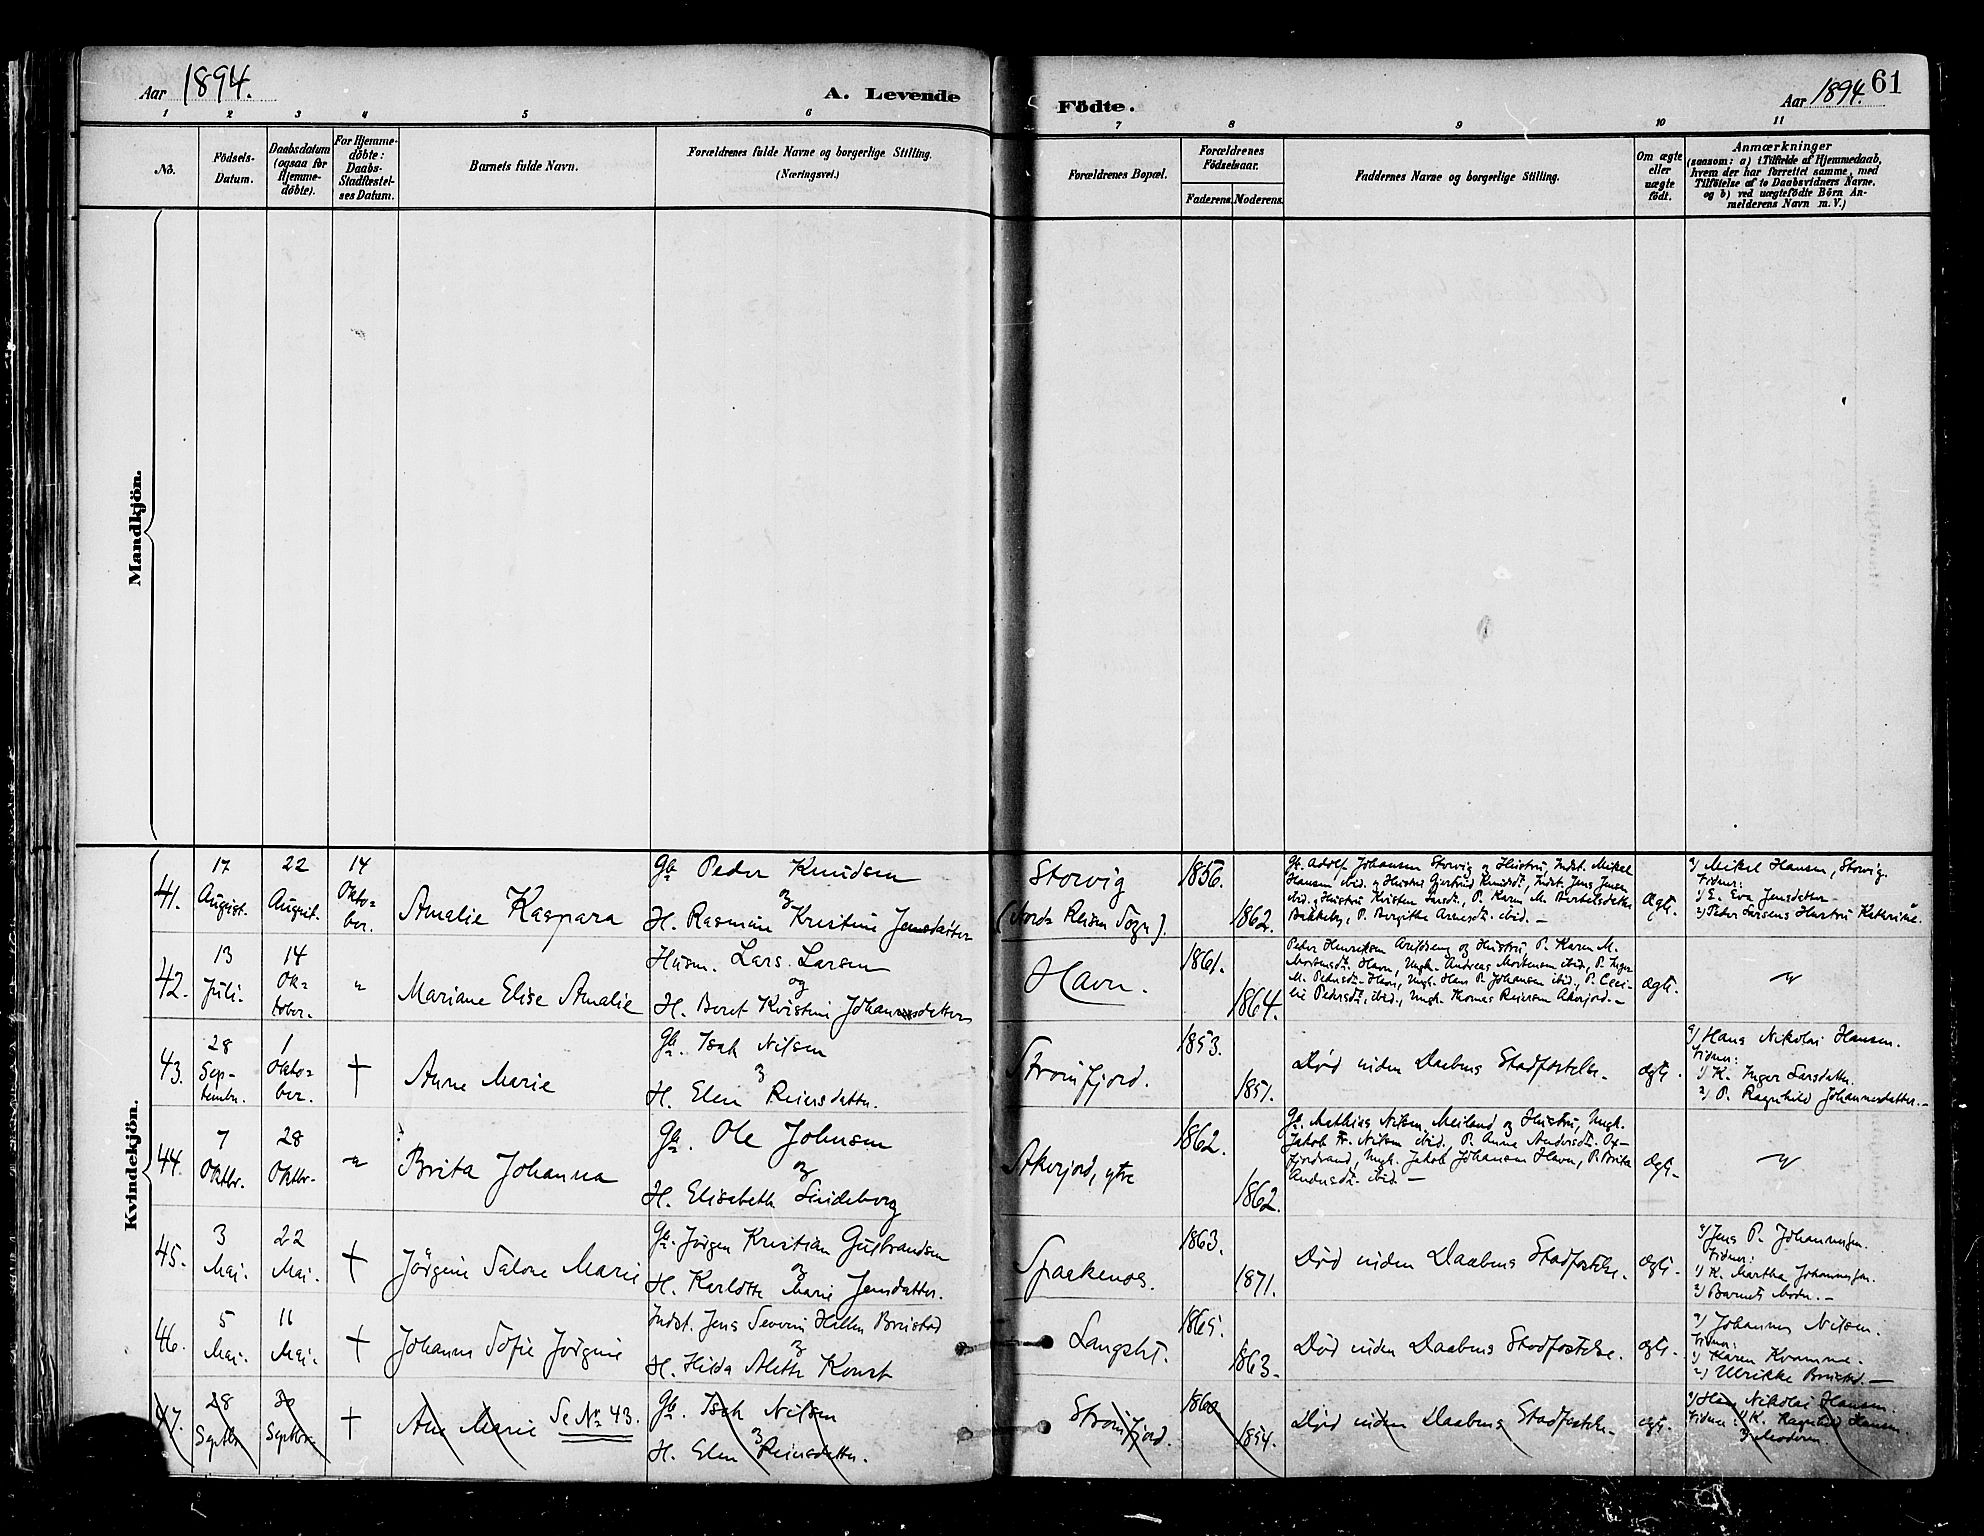 Aar 1894.
A. Levende
Födte.
Aar 1894.
61
1 2 3 4 5 6 7 8 9 10 11
No.
Födsels-
Datum.
Daabsdatum
(ogsaa for
Hjemme-
döbte).
For Hjemme-
döbte:
Daabs-
Stadfæstel-
ses Datum.
Barnets fulde Navn.
Forældrenes fulde Navne og borgerlige Stilling.
(Næringsvei.)
Forældrenes Bopæl.
Forældrenes
Födselsaar.
Faderens. Moderens.
Faddernes Navne og borgerlige Stilling.
Om ægte
eller
uægte
födt.
Anmærkninger
(saasom: a) i Tilfælde af Hjemmedaab,
hvem der har forrettet samme, med
Tilföielse af to Daabsvidners Navne.
og b) ved uægtefödte Börn An-
melderens Navn m. V.)
Mandkjön.
Kvindekjön.
41.
17
August.
22
August.
14
Okto=
ber.
Amalie Kaspara
Gb Peder Knudsen
og
H. Rasmine Kristine Jensdatter
Storvig
(Nord= Reisen Sogn).
1856.
1862.
Gb. Adolf Johansen Storvig og Hustru, Indst. Mikel
Hansen ibid. og Hustru Gjertrud Knudsdt., Indst. Jens Jensen
ibid. og Hustru Kristen Larsdt., P. Karen M. Bertelsdatter
Bakkeby, P. Bergithe Arnesdt. ibid. —
Ægte.
a) Mikel Hansen, Storvig.
Vidner:
1) E. Eva Jensdatter —
2) Peter Larsens Hustru Katharine.
42.
13
Juli.
14
Ok=
tober.
"
Mariane Elise Amalie
Husm. Lars Larsen
og
H. Beret Kristine Johannesdatter
Havn.
1861.
1864.
Peder Henriksen og Hustru, P. Karen M.
Mortensdt. Havn, Ungk. Andreas Mortensen ibid., P. Inger
M. Pedersdt. Havn, Ungk. Hans P. Johansen ibid., P. Ceci-
lie Pedersdt. ibid., Ungk. Thomas Reiersen Akerjord. —
ægte.
"
43.
28
Sep-
tember.
1
Okto=
ber.
†
Anne Marie
Gb. Isak Nilsen
og
H. Elen Reiersdatter.
Stromfjord.
1853.
1851.
Død inden Daabens Stadfæstelse.
ægte.
a) Hans Nikolai Hansen.
Vidner:
1) K. Inger Larsdatter.
2) P. Ragnhild Johannesdatter. —
44.
7
Oktbr.
28
Oktbr.
"
Brita Johanna
Gb. Ole Johnsen
og
H. Elisabeth Lindeborg
Akerjord, ytre
1862.
1862.
Gb. Mathias Nilsen, Meiland og Hustru, Ungk.
Jakob Fr. Nilsen ibid. P. Anna Andersdt. Ox-
fjordvand, Ungk. Jakob Johansen Havn, P. Brita
Andersdt. ibid. —
Ægte.
"
45.
3
Mai.
22
Mai.
†
Jörgine Salone Marie
Gb. Jörgen Kristian Gulbrandsen
og
H. Karlotte Marie Jensdatter.
Spaakenes.
1863.
1871.
Død inden Daabens Stadfæstelse.
ægte.
a) Jens P. Johannesen.
Vidner:
1) K. Martha Johannesen.
2) Barnets Moder. —
46.
5
Mai.
11
Mai.
†
Johanne Sofie Jörgine
Indst. Jens Severin Hilben Breistad
og
H. Hilda Alette Konst
Langslt.
1865.
1863.
Død inden Daabens Stadfæstelse.
ægte.
a) Johannes Nilsen.
Vidner:
1) Karen Kvamme.
2) Ulrikke Breistad. —
47.
28
Septbr.
30
Septbr.
†
Ane Marie Se No 43.
Gb. Isak Nilsen
og
H. Elen Reiersdatter.
Stromfjord.
1860
1854.
Død inden Daabens Stadfæstelse.
ægte.
a) Hans Nikolai Hansen.
Vidner: 1) K. Ragnhild Hansen.
2) Moderen.